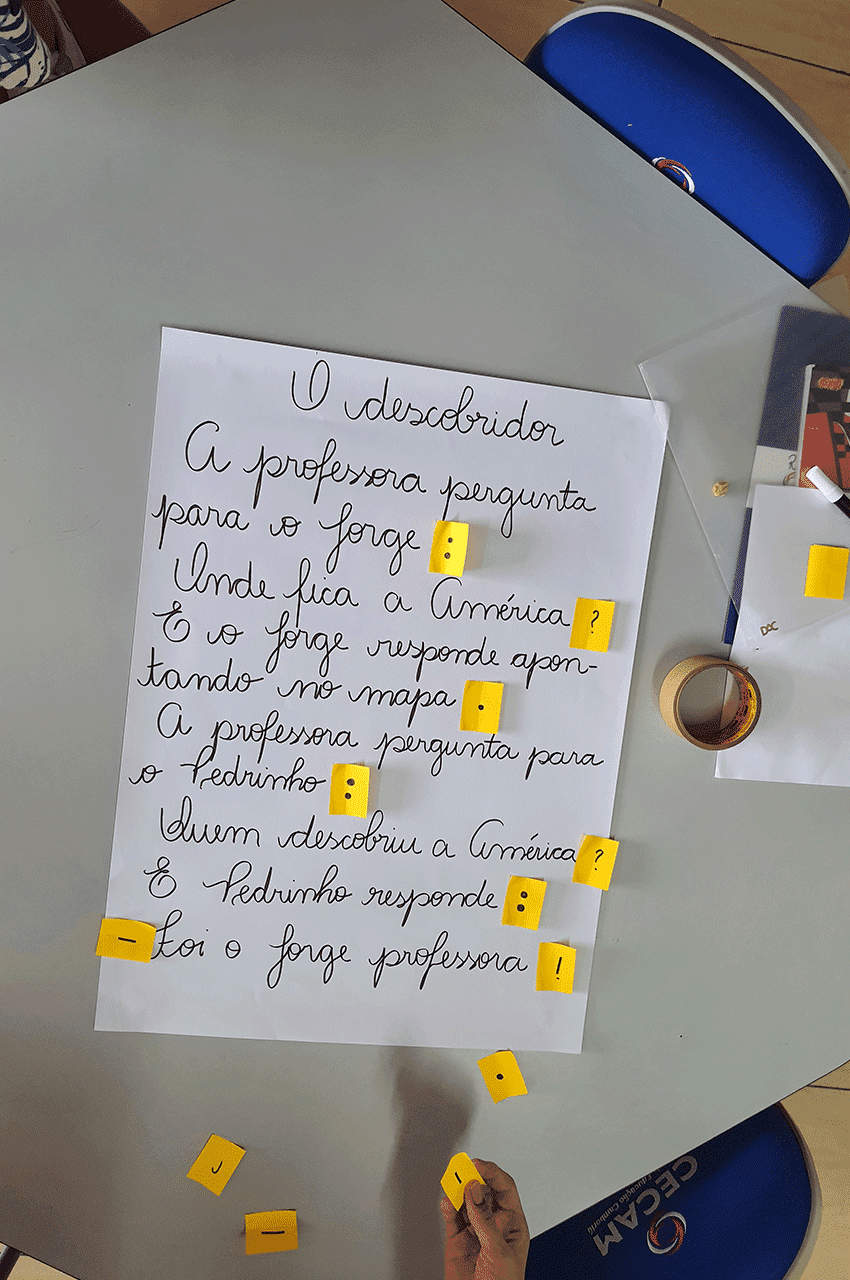 O descobridor
A professora pergunta
para o Jorge :
Onde fica a América ?
E o Jorge responde apon-
tando no mapa .
A professora pergunta para
o Pedrinho :
Quem descobriu a América ?
E Pedrinho responde :
- Foi o Jorge professora !
.
-
CECAM
DAC